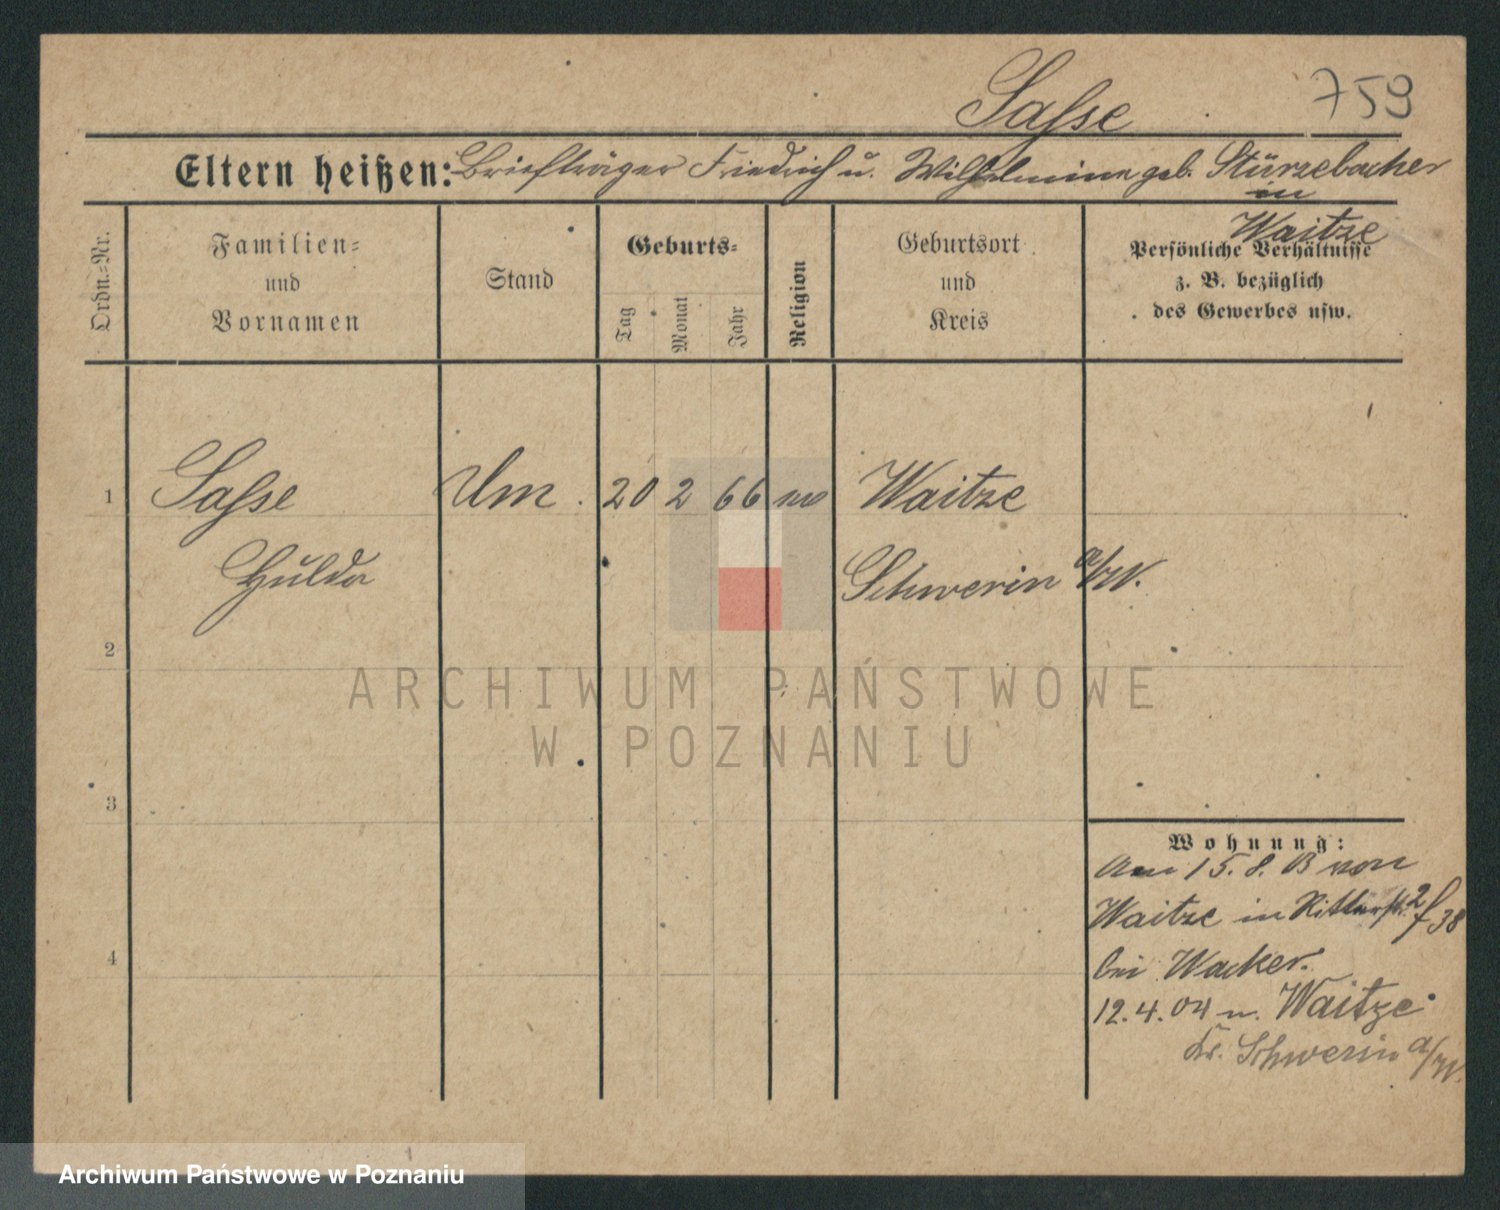 Sasse 759
Eltern heißen: Briefträger Friedrich u. Wilhelmine geb. Stürzebacher
in
Waitze
Ordn.-Nr.
Familien- und Vornamen
Stand
Geburts-
Tag
Monat
Jahr
Religion
Geburtsort und Kreis
Persönliche Verhältnisse
z. B. bezüglich
des Gewerbes usw.
1 Sasse 20 2 66 Waitze
Hulda Schwerin a/W.
2
3
4
Wohnung:
Am 15. 8. 03 von
Waitze in Ritterstr. 38
bei Wacker.
12.4.04 n. Waitze
Kr. Schwerin a/W.
ARCHIWUM PAŃSTWOWE
W POZNANIU
Archiwum Państwowe w Poznaniu